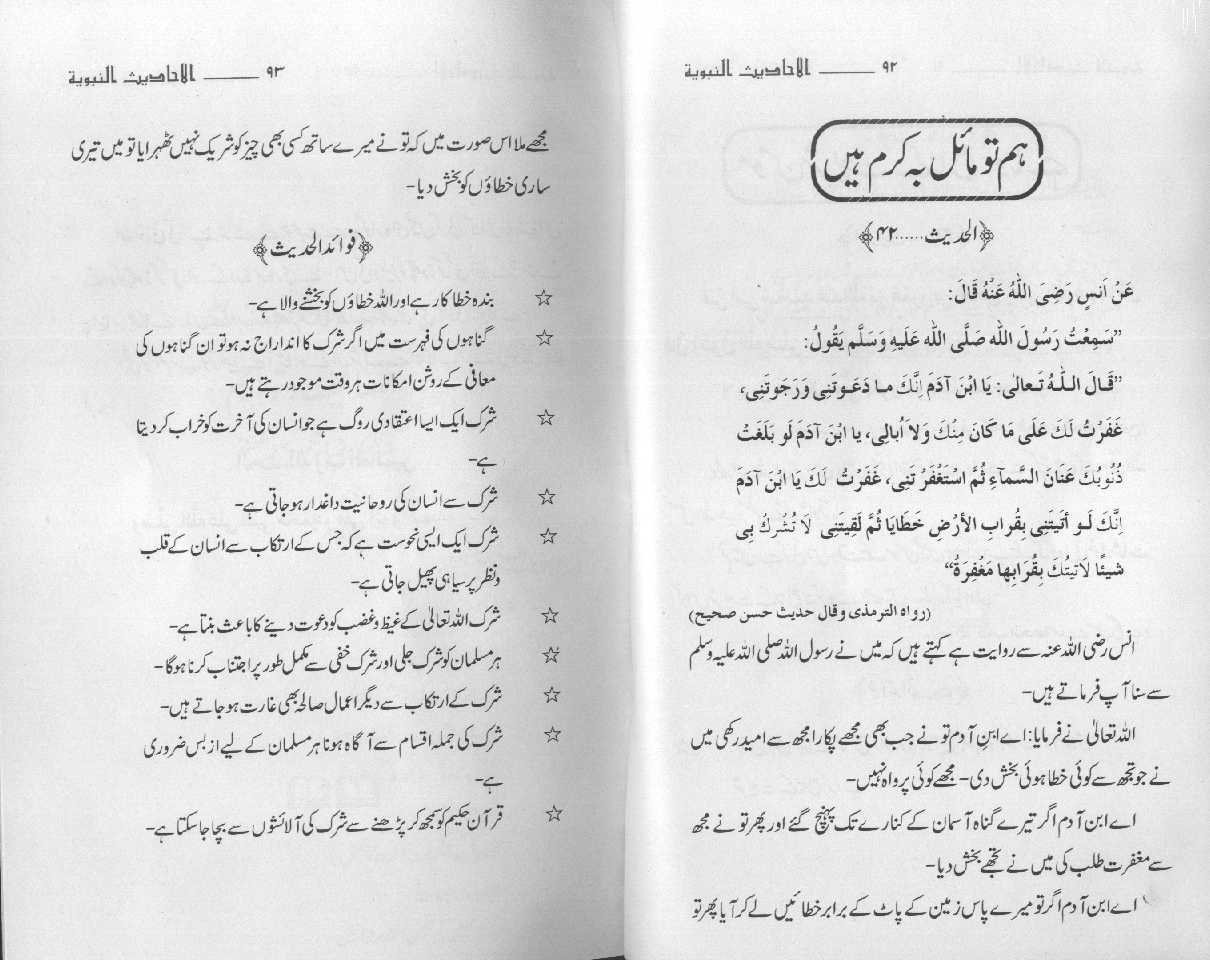 ۹۲ ـــــــ الاحادیث النبویة
ہم تو مائل بہ کرم ہیں
﴿الحدیث......۴۲﴾
عَنْ اَنَسٍ رَضِیَ اللّٰهُ عَنْهُ قَالَ:
”سَمِعْتُ رَسُولَ اللّٰه صَلَّی اللّٰه عَلَیهِ وَسَلَّم یَقُولُ:
”قَالَ اللّٰهُ تَعالٰی: یَا ابْنَ آدَمَ اِنَّكَ ما دَعَوتَنِی وَرَجَوتَنِی،
غَفَرْتُ لَكَ عَلَی مَا كَانَ مِنْكَ وَلاَ اُبالِی، یا ابْنَ آدَمَ لَو بَلَغَتْ
ذُنُوبُكَ عَنَانَ السَّمآءِ ثُمَّ اسْتَغْفَرْتَنِی، غَفَرْتُ لَكَ یَا ابْنَ آدَمَ
اِنَّكَ لَو أتَیتَنِی بِقُرابِ الأرْضِ خَطَایَا ثُمَّ لَقِیتَنِی لَا تُشْرِكُ بِی
شیئًا لَاَتیتُكَ بِقُرَابِها مَغْفِرَةً“
(رواه الترمذی وقال حدیث حسن صحیح)
انس رضی اللہ عنہ سے روایت ہے کہتے ہیں کہ میں نے رسول اللہ صلی اللہ علیہ وسلم
سے سنا آپ فرماتے ہیں-
اللہ تعالیٰ نے فرمایا: اے ابنِ آدم تو نے جب بھی مجھے پکارا مجھ سے امید رکھی میں
نے جو تجھ سے کوئی خطا ہوئی بخش دی- مجھے کوئی پرواہ نہیں-
اے ابن آدم اگر تیرے گناہ آسمان کے کنارے تک پہنچ گئے اور پھر تو نے مجھ
سے مغفرت طلب کی میں نے تجھے بخش دیا-
اے ابن آدم اگر تو میرے پاس زمین کے پاٹ کے برابر خطائیں لے کر آیا پھر تو
۹۳ ـــــــ الاحادیث النبویة
مجھے ملا اس صورت میں کہ تو نے میرے ساتھ کسی بھی چیز کو شریک نہیں ٹھہرایا تو میں تیری
ساری خطاؤں کو بخش دیا-
﴿فوائد الحدیث﴾
☆ بندہ خطا کار ہے اور اللہ خطاؤں کو بخشنے والا ہے-
☆ گناہوں کی فہرست میں اگر شرک کا اندراج نہ ہو تو ان گناہوں کی
معافی کے روشن امکانات ہر وقت موجود رہتے ہیں-
☆ شرک ایک ایسا اعتقادی روگ ہے جو انسان کی آخرت کو خراب کر دیتا
ہے-
☆ شرک سے انسان کی روحانیت داغدار ہو جاتی ہے-
☆ شرک ایک ایسی نحوست ہے کہ جس کے ارتکاب سے انسان کے قلب
و نظر پر سیاہی پھیل جاتی ہے-
☆ شرک اللہ تعالیٰ کے غیظ و غضب کو دعوت دینے کا باعث بنتا ہے-
☆ ہر مسلمان کو شرک جلی اور شرک خفی سے مکمل طور پر اجتناب کرنا ہوگا-
☆ شرک کے ارتکاب سے دیگر اعمال صالحہ بھی غارت ہو جاتے ہیں-
☆ شرک کی جملہ اقسام سے آگاہ ہونا ہر مسلمان کے لیے از بس ضروری
ہے-
☆ قرآن حکیم کو سمجھ کر پڑھنے سے شرک کی آلائشوں سے بچا جا سکتا ہے-